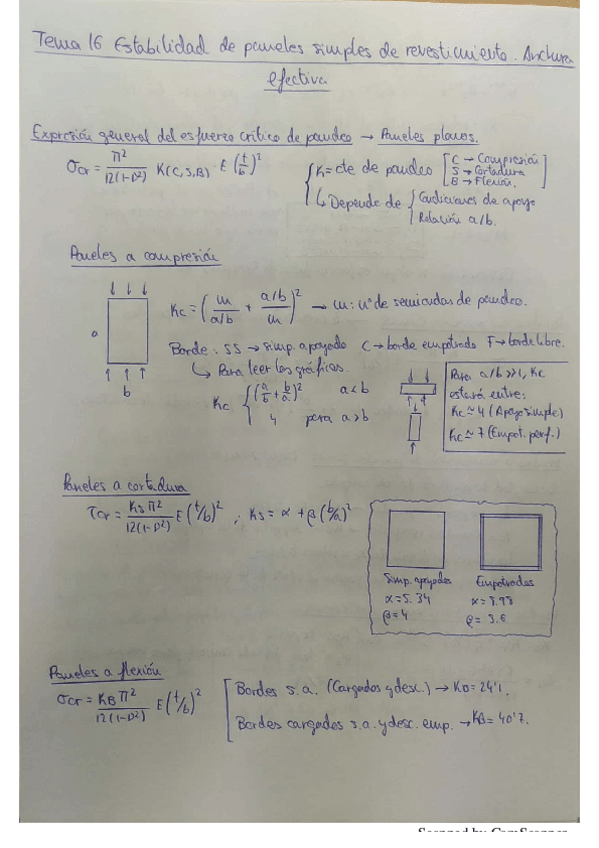 Tema 16 Estabilidad de paneles simples de revestimiento. Anchura
efectiva
Expresión general del esfuerzo crítico de pandeo → Paneles planos.
σcr = π² / 12(1-ν²) K(C,S,B) · E (t/b)²
K = cte de pandeo [C → Compresión
S → Cortadura
B → Flexión.]
↳ Depende de { Condiciones de apoyo
Relación a/b.
Paneles a compresión
a
b
Kc = (m / a/b + a/b / m)² → m: nº de semiondas de pandeo.
Borde: SS → simp. apoyado C → borde empotrado F → borde libre.
↳ Para leer los gráficos.
Kc { (a/b + b/a)² a<b
4 para a>b
Para a/b >>1, Kc
estará entre:
Kc ≃ 4 (Apoyo simple)
Kc ≃ 7 (Empot. perf.)
Paneles a cortadura
τcr = Ks π² / 12(1-ν²) E (t/b)² ; Ks = α + β (b/a)²
Simp. apoyados
α = 5.34
β = 4
Empotrados
α = 8.98
β = 5.6
Paneles a flexión
σcr = KB π² / 12(1-ν²) E (t/b)²
Bordes s.a. (Cargados y desc.) → KB = 24'1.
Bordes cargados s.a. y desc. emp. → KB = 40'7.
Scanned by CamScanner